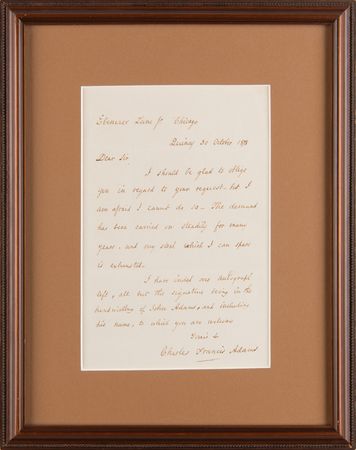 Ebenezer Lane Jr Chicago
Quincy 30 October 18
Dear Sir
I should be glad to oblige
you in regard to your request, but I
am afraid I cannot do so. The demand
has been carried on steadily for many
years, and my stock which I can spare
is exhausted.
I have indeed one autograph
left, all but the signature being in the
handwriting of John Adams, and including
his name, to which you are welcome
Yours &
Charles Francis Adams